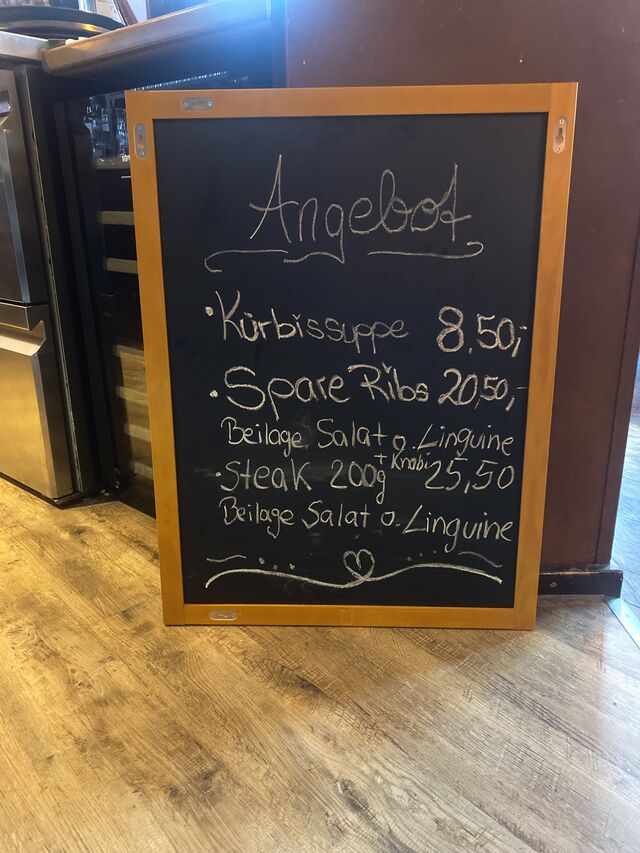 Angebot
• Kürbissuppe 8.50,-
• Spare Ribs 20,50,-
Beilage Salat o. Linguine
+ Knobi
• Steak 200g 25,50
Beilage Salat o. Linguine